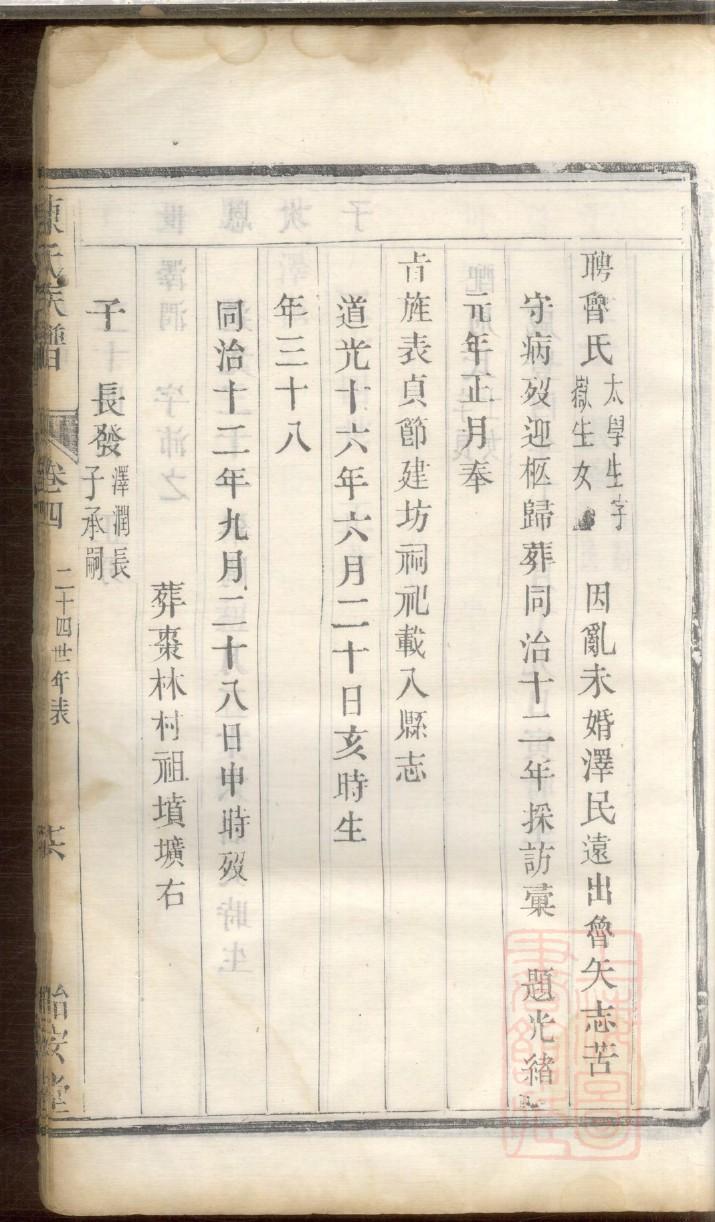 聘魯氏 太學生字 嶽生女 因亂未婚澤民遠出魯矢志苦
守病歿迎柩歸葬同治十二年採訪彙 題光緒
元年正月奉
旨旌表貞節建坊祠祀載入縣志
道光十六年六月二十日亥時生
年三十八
同治十二年九月二十八日申時歿
葬棗林村祖墳壙右
子 長發 澤潤長 子承嗣
陳氏族譜 卷四 二十四世年表 怡安堂